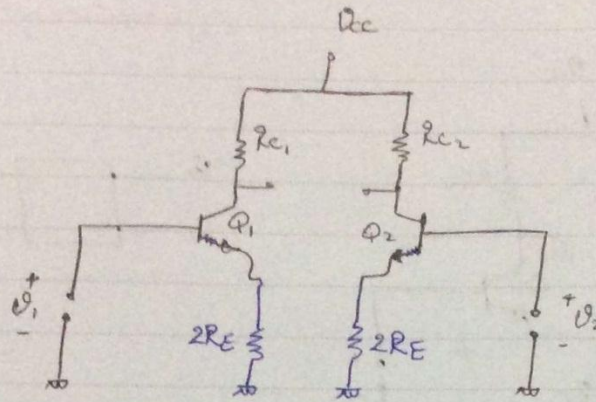 Vcc
Rc1
Rc2
Q1
Q2
+
v1
-
+
v2
-
2RE
2RE